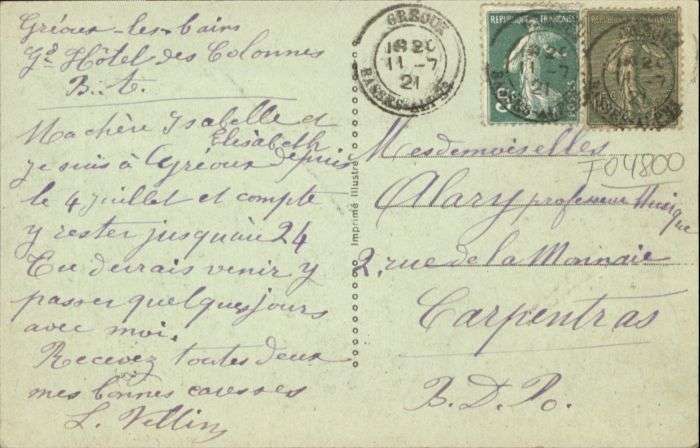 Gréoux-les-bains
Gd Hôtel des Colonnes
B.A.
Ma chère Isabelle et
Elisabeth
je suis à Gréoux depuis
le 4 juillet et compte
y rester jusqu'au 24
Tu devrais venir y
passer quelques jours
avec moi.
Recevez toutes deux
mes bonnes caresses
L. Vellin
Imprimé Illustré
GREOUX
18 20
11-7
21
BASSES-ALPES
REPUBLIQUE FRANÇAISE
REPUBLIQUE FRANÇAISE
Mesdemoiselles
T04800
Alary professeur Musique
2, rue de la Monnaie
Carpentras
B.D.Po.